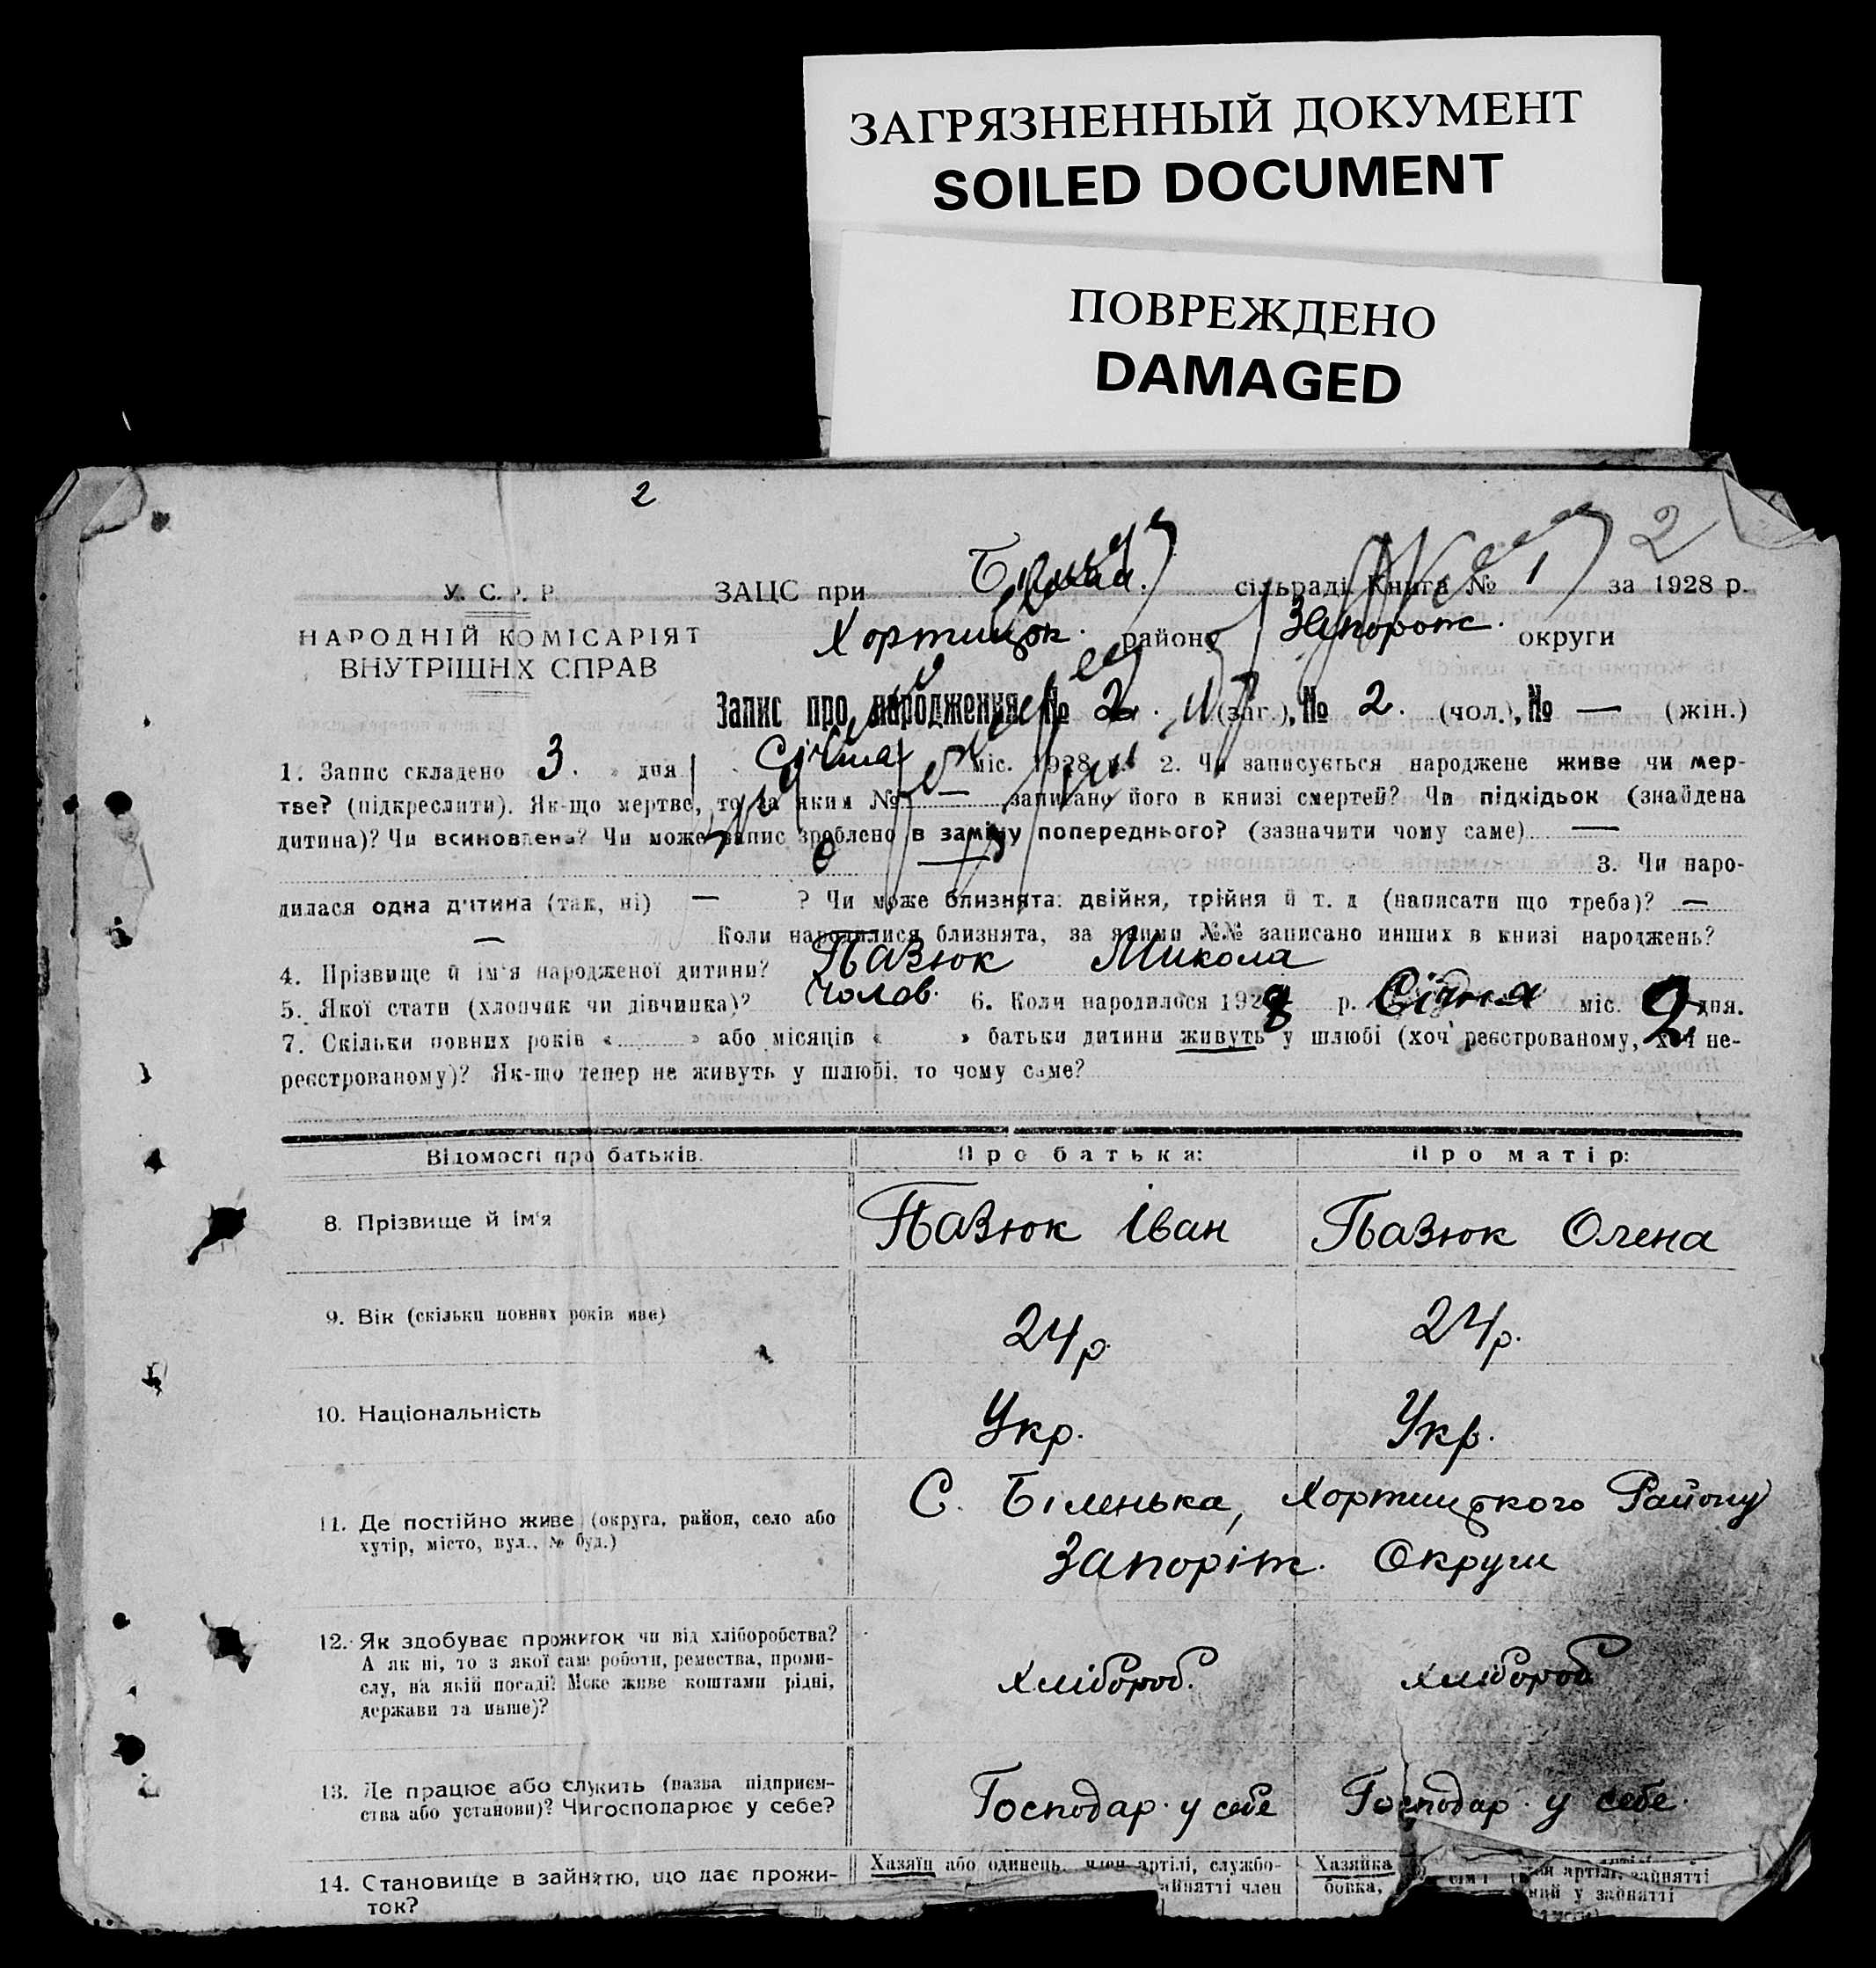 ЗАГРЯЗНЕННЫЙ ДОКУМЕНТ
SOILED DOCUMENT
ПОВРЕЖДЕНО
DAMAGED
2
2
У. С. Р. Р.
НАРОДНІЙ КОМІСАРІЯТ
ВНУТРІШНІХ СПРАВ
ЗАЦС при сільраді Книга № 1 за 1928 р.
Хортицьк. району Запорож. округи
Запис про народження № 2. (заг.), № 2. (чол.), № — (жін.)
1. Запис складено « 3. » дня Січня міс. 1928 р. 2. Чи записується народжене живе чи мер-
тве? (підкреслити). Як-що мертве, то за яким № — записано його в книзі смертей? Чи підкідьок (знайдена
дитина)? Чи всиновлена? Чи може запис зроблено в заміну попереднього? (зазначити чому саме) —
— 3. Чи наро-
дилася одна дитина (так, ні) — ? Чи може близнята: двійня, трійня й т. д (написати що треба)? —
— Коли народилися близнята, за якими №№ записано инших в книзі народжень?
4. Прізвище й ім'я народженої дитини? Пазюк Микола
5. Якої стати (хлопчик чи дівчинка)? Чолов. 6. Коли народилося 1928 р. Січня міс. 2 дня.
7. Скільки повних років « » або місяців « » батьки дитини живуть у шлюбі (хоч реєстрованому, хоч не-
реєстрованому)? Як-що тепер не живуть у шлюбі, то чому саме?
Відомості про батьків. Про батька: Про матір:
8. Прізвище й ім'я Пазюк Іван Пазюк Олена
9. Вік (скільки повних років має) 24 р. 24 р.
10. Національність Укр. Укр.
11. Де постійно живе (округа, район, село або
хутір, місто, вул., № буд.)
С. Біленька, Хортицького Району
Запоріж. Округи
12. Як здобуває прожиток чи від хліборобства?
А як ні, то з якої саме роботи, ремества, проми-
слу, на якій посаді? Може живе коштами рідні,
держави та инше)?
Хлібороб. Хлібороб
13. Де працює або служить (назва підприєм-
ства або установи)? Чи господарює у себе?
Господар. у себе Господар. у себе.
14. Становище в зайняттю, що дає прожи-
ток?
Хазяїн або одинець, член артілі, службо-
зайнятті член
Хазяйка
бовка, артілі, зайнятті
у зайнятті